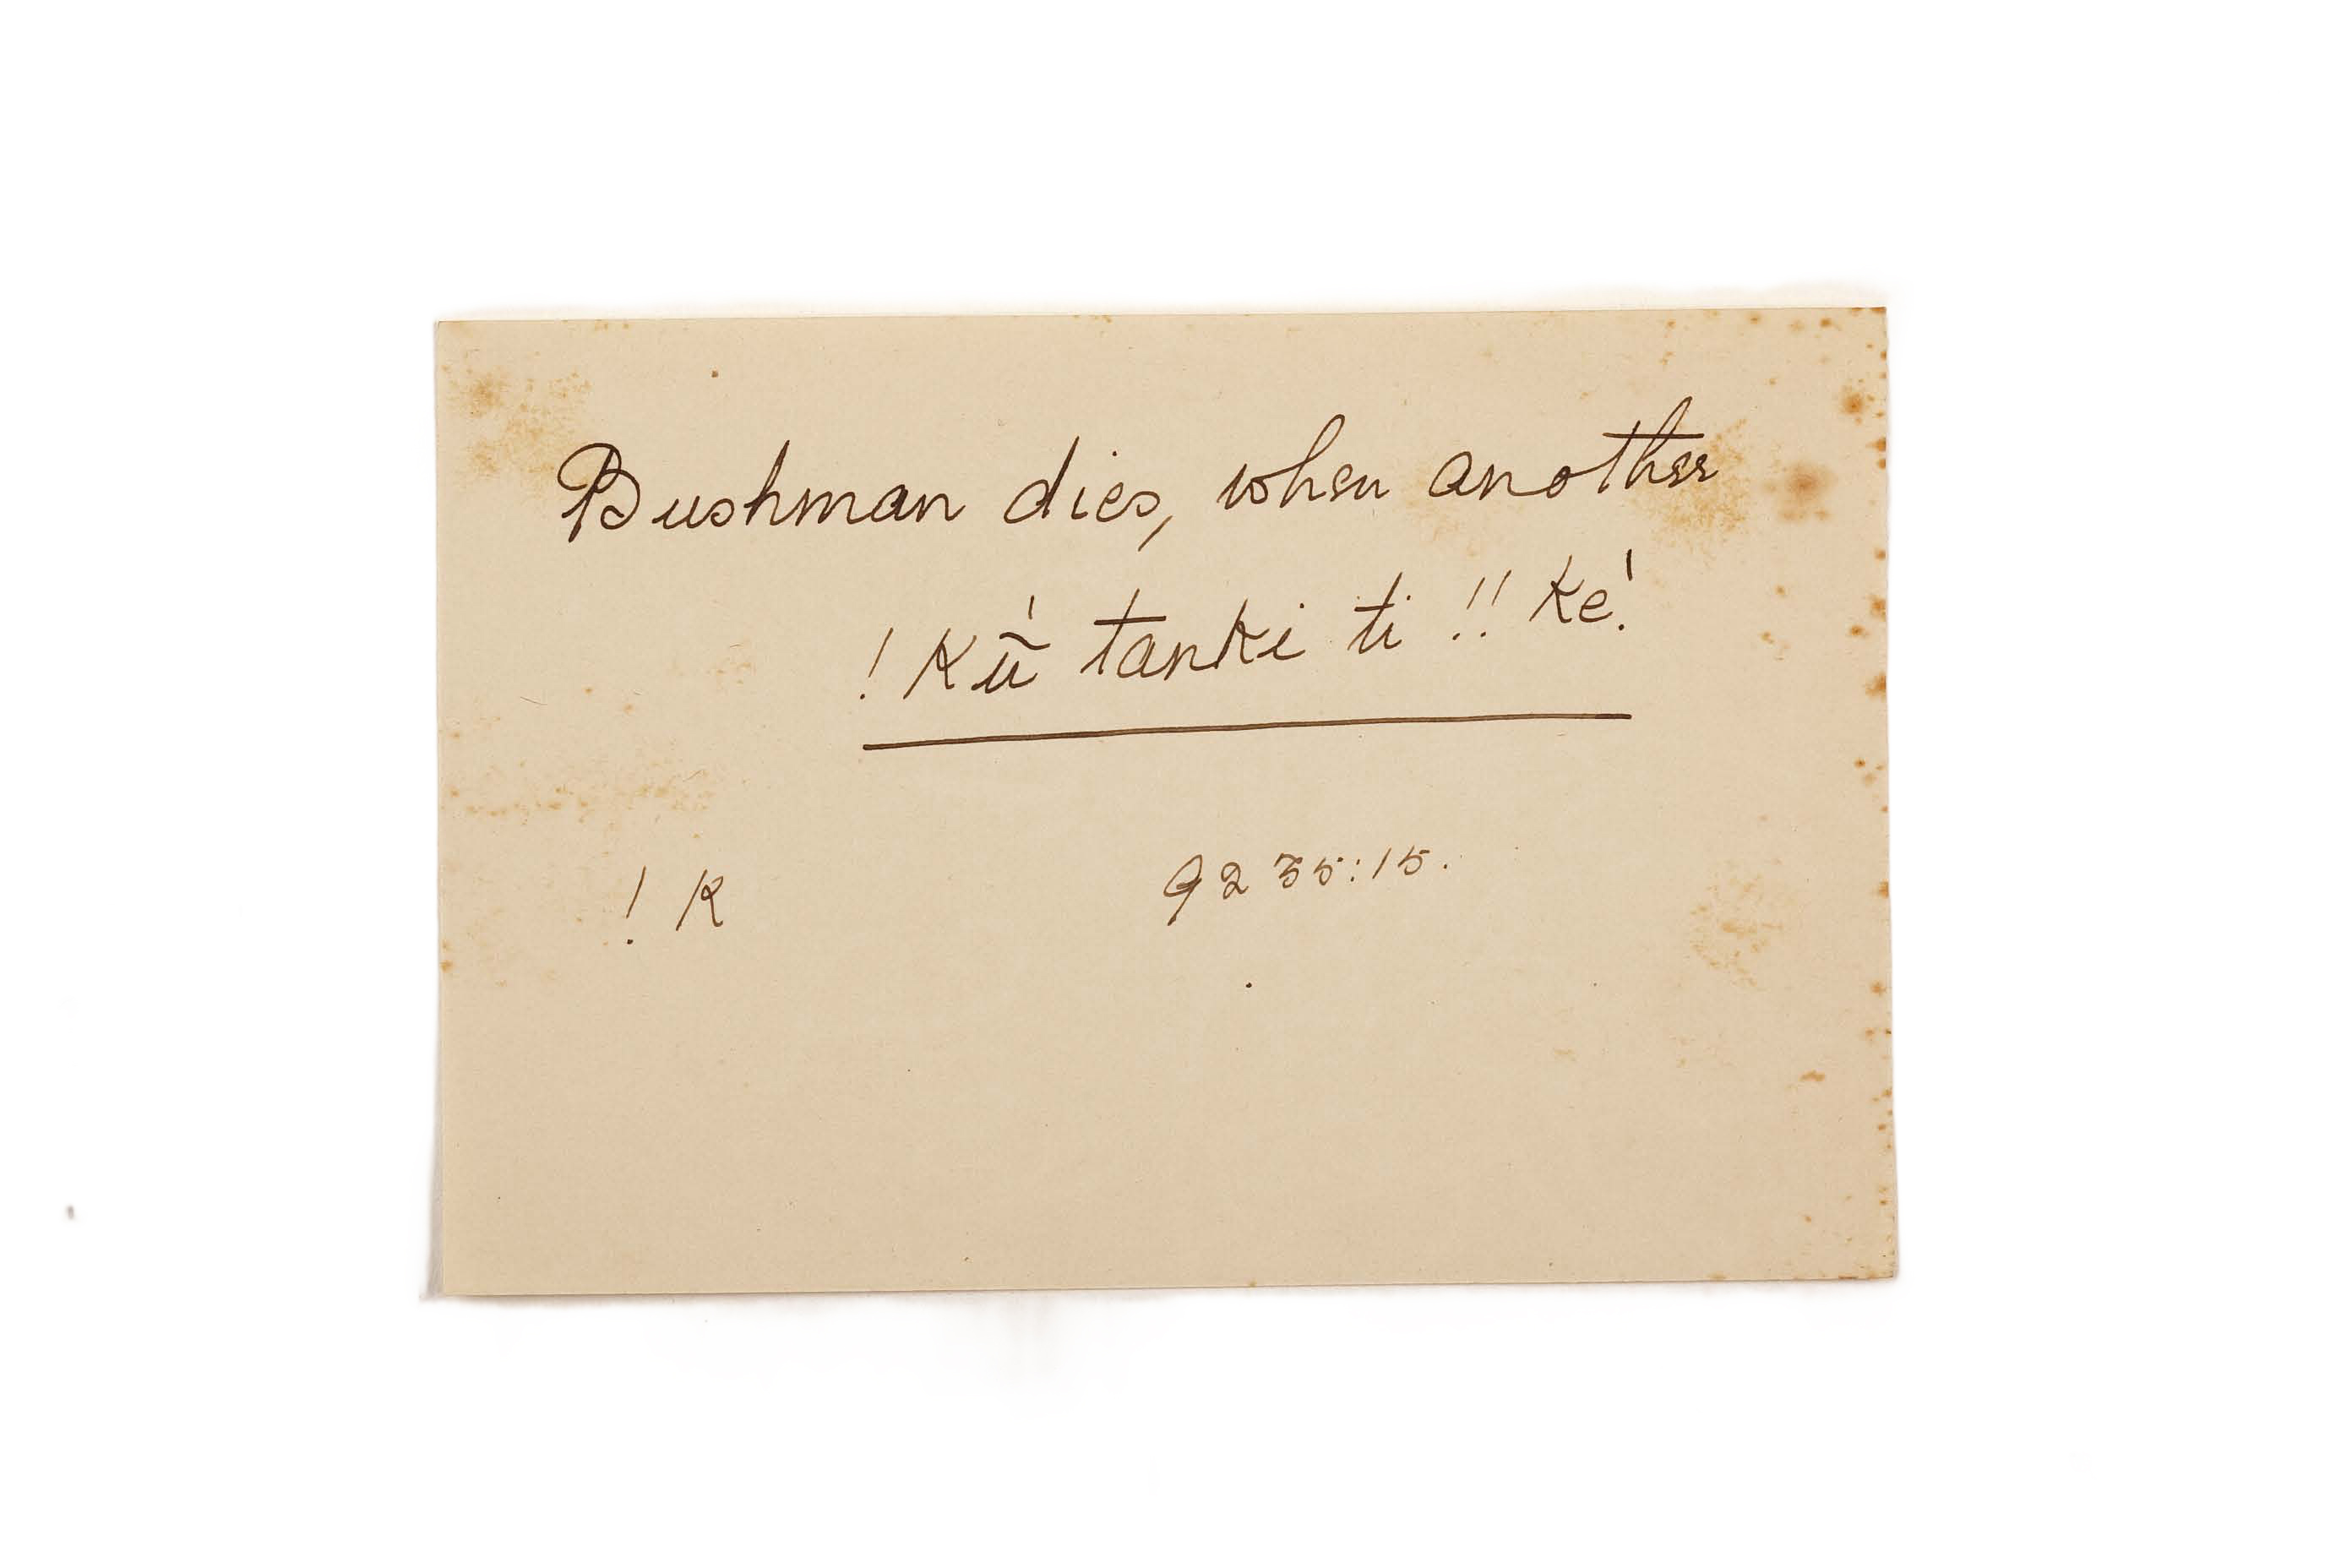 Bushman dies, when another
! Kū̃́ tanki ti !! Ké.
! K 9235:15.